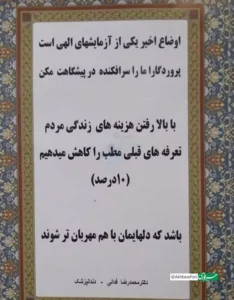 اوضاع اخیر یکی از آزمایشهای الهی است
پروردگارا ما را سرافکنده در پیشگاهت مکن
با بالا رفتن هزینه های زندگی مردم
تعرفه های قبلی مطب را کاهش میدهیم
(۱۰درصد)
باشد که دلهایمان با هم مهربان تر شوند
دکتر محمدرضا فدائی - دندانپزشک